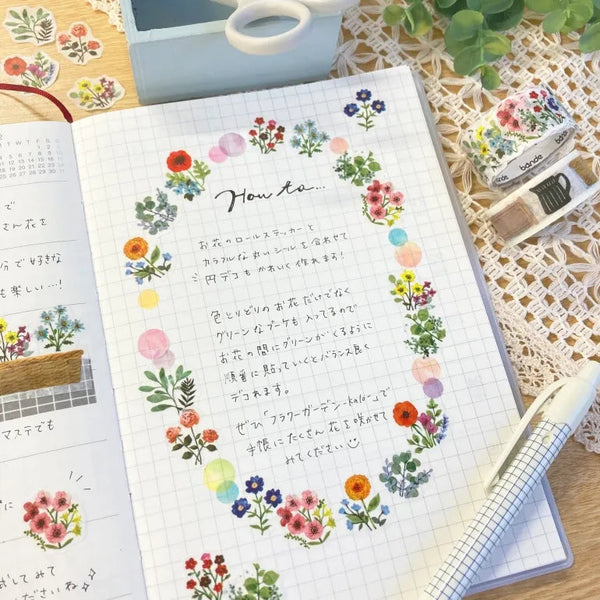 How to...
お花のロールステッカーと
カラフルな丸いシールを合わせて
円デコもかわいく作れます!
色とりどりのお花だけでなく
グリーンなブーケも入ってるので
お花の間にグリーンがくるように
順番に貼っていくとバランス良く
デコれます。
ぜひ「フラワーガーデン-kalo-」で
手帳にたくさん花を咲かせて
みてください
で
さん花を
分で好きな
も楽しい…!
マステでも
に
試してみて
くださいね
bande